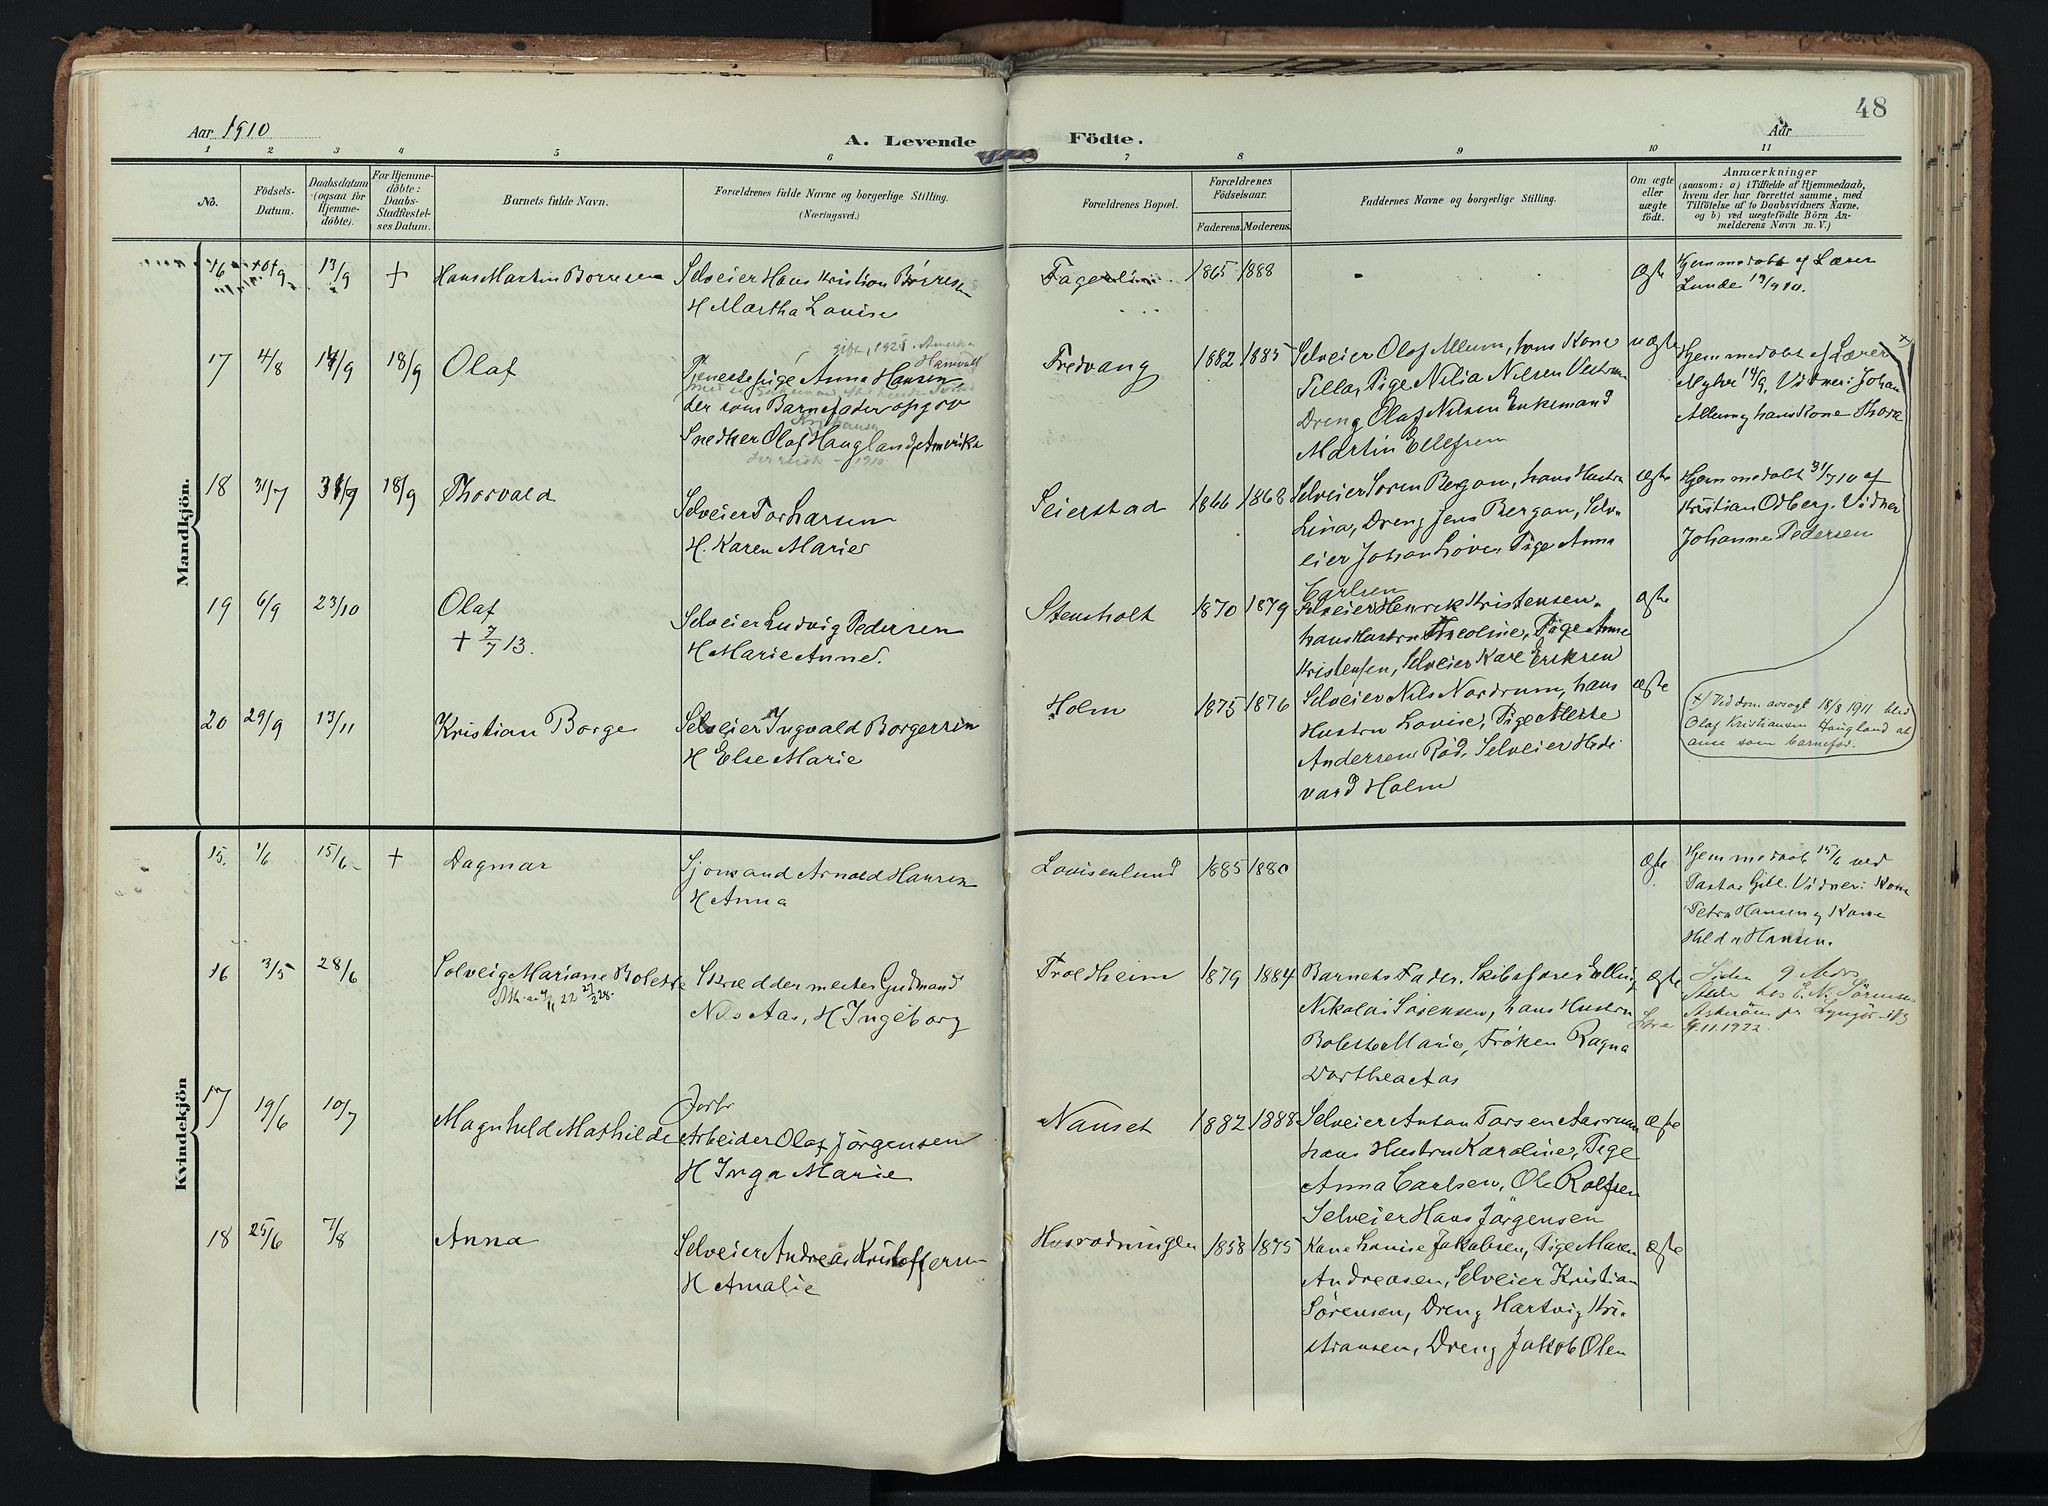 48
Aar 1910
A. Levende
Födte.
Aar
1 2 3 4 5 6 7 8 9 10 11
No.
Födsels-
Datum.
Daabsdatum
(ogsaa for
Hjemme-
döbte).
For Hjemme-
döbte:
Daabs-
Stadfæstel-
ses Datum.
Barnets fulde Navn.
Forældrenes fulde Navne og borgerlige Stilling.
(Næringsvei.)
Forældrenes Bopæl.
Forældrenes
Födselsaar.
Faderens. Moderens.
Faddernes Navne og borgerlige Stilling.
Om ægte
eller
uægte
födt.
Anmærkninger
(saasom: a) i Tilfælde af Hjemmedaab,
hvem der har forrettet samme, med
Tilföielse af to Daabsvidners Navne,
og b) ved uægtefödte Börn An-
melderens Navn m. V.)
Mandkjön.
16 13/9 + Hans Martin Borresen
Selveier Hans Kristian Börresen
H Martha Lovise
1865 1888
Ægte
Hjemmedøbt af Lærer
Lunde 13/9 10.
17 4/8 14/9 18/9 Olaf
gift, 1921. Amerika
Tjenestepige Anna Hansen,
der som Barnefader opgav
Snedker Olaf Haugland, Amerika
Fredvang
1882 1885
Selveier Olaf Allum, hans Kone
Tilla, Pige Nilia Nilsen Vestrum
Dreng Olaf Nilsen Enkemand
Martin Ellefsen
uægte
Hjemmedøbt af Lærer
Myhre 14/9, Vidner: Johan
Allum og hans Kone Thora
18 31/7 31/7 18/9 Thorvald
Selveier Tor Larsen
H. Karen Marie
Seierstad
1866 1868
Selveier Soren Bergan, hans Hustru
Lina, Dreng Jens Bergan, Selv-
eier Johan Löve, Pige Anna
Carlsen
Ægte
Hjemmedøbt 31/7 10 af
Kristian Odberg. Vidne
Johanne Pedersen
19 6/9 23/10 Olaf
+ 7/7 13.
Selveier Ludvig Pedersen
H Marie Anne.
Stensholt
1870 1879
Selveier Henrik Kristensen,
hans Hustru Theoline, Pige Anne
Kristensen, Selveier Karl Eriksen
ægte
20 29/9 13/11 Kristian Borge
Selveier Ingvald Borgersen
H Else Marie
Holm
1875 1876
Selveier Nils Nordrum, hans
Hustru Lovise, Pige Mette
Andersen Röd, Selveier Hedi-
vard Holm
ægte
x) Ved dom avsagt 18/8 1911 blev
Olaf Kristiansen Haugland at
anse som barnefar.
Kvindekjön
15. 1/6 15/6 + Dagmar
Sjömand Arnold Hansen
H Anna
Lovisenlund
1885 1880
Ægte
Hjemmedaab 15/6 ved
Pastor Gibl. Vidner: Kone
Petra Hansen og Kone
Hilda Hansen.
16 3/5 28/6 Solveig Mariane Bolette
Skræddermester Gudmand
Nils Aas, H Ingeborg
Troldheim
1879 1884
Barnets Fader, Skibsfører Elling
Nikolai Sørensen, hans Hustru
Bolette Marie, Frøken Ragna
Dorthea Aas
ægte
Siden 9 Mdrs
hos E. N. Sörensen
Askerøen pr Lyngør
9.11.1922.
17 19/6 10/7 Magnhild Mathilde
Arbeider Olaf Jørgensen
H Inga Marie
Nanset
1882 1888
Selveier Anton Torsen Aasrum
hans Hustru Karoline, Pige
Anna Carlsen, Ole Rolfsen
Selveier Hans Jörgensen
ægte
18 25/6 7/8 Anna
Selveier Andreas Kristoffersen
H Amalie
Husrødningen
1858 1875
Kone Lovise Jakobsen, Pige Maren
Andreasen, Selveier Kristian
Sørensen, Dreng Hartvig Kri-
stiansen, Dreng Jakob Olsen
ægte